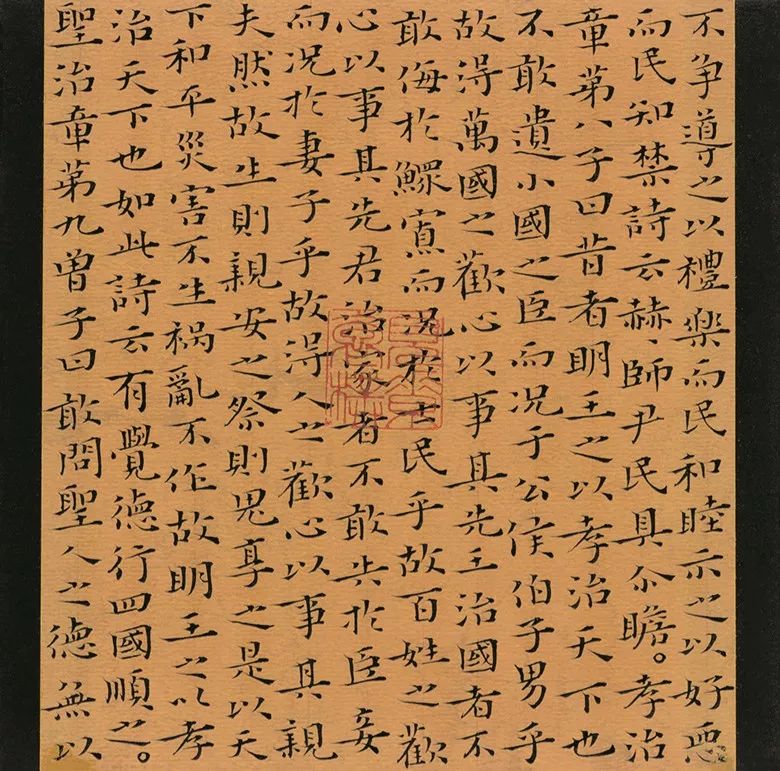 不争導之以禮樂而民和睦示之以好惡
而民知禁詩云赫〻師尹民具尒瞻。孝治
章第八子曰昔者明王之以孝治天下也
不敢遺小國之臣而況于公侯伯子男乎
故得萬國之歡心以事其先王治國者不
敢侮於鰥寡而況於士民乎故百姓之歡
心以事其先君治家者不敢失於臣妾
而況於妻子乎故得人之歡心以事其親
夫然故生則親安之祭則鬼享之是以天
下和平災害不生禍亂不作故明王之以孝
治天下也如此詩云有覺德行四國順之。
聖治章第九曾子曰敢問聖人之德無以